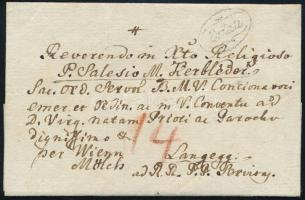 Reverendo in Xto Religioso
P. Salesio M. Kerbleder
Sac. Ord. Servor. B. M. V. Concionatori
emer et Ordin. ac in V. Conventu ad
D. Virg. natam Priori ac Parocho
dignissimo &
14
per Wienn Langegg.
Mölch
ad R. R. P. P.